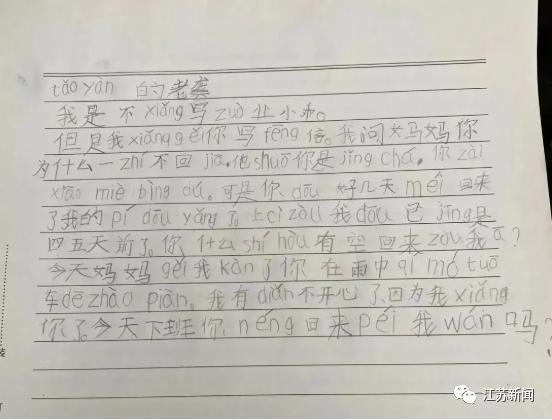 tǎo yàn 的老龚
我是不xiǎng写zuò业小乖。
但是我xiǎng gěi你写fēng信。我问妈妈你
为什么一zhí不回jiā。他shuō你是jǐng chá。你zài
xiāo miè bìng dú。可是你dōu好几天méi回来
了我的pí dōu yǎng了。上cì zòu我dōu已jīng是
四五天前了。你什么shí hòu有空回来zòu我ā？
今天妈妈gěi我kàn了你在雨中qí mó tuō
车dē zhào piàn。我有diǎn不开心了因为我xiǎng
你了。今天下班你néng回来péi我wán吗？
江苏新闻